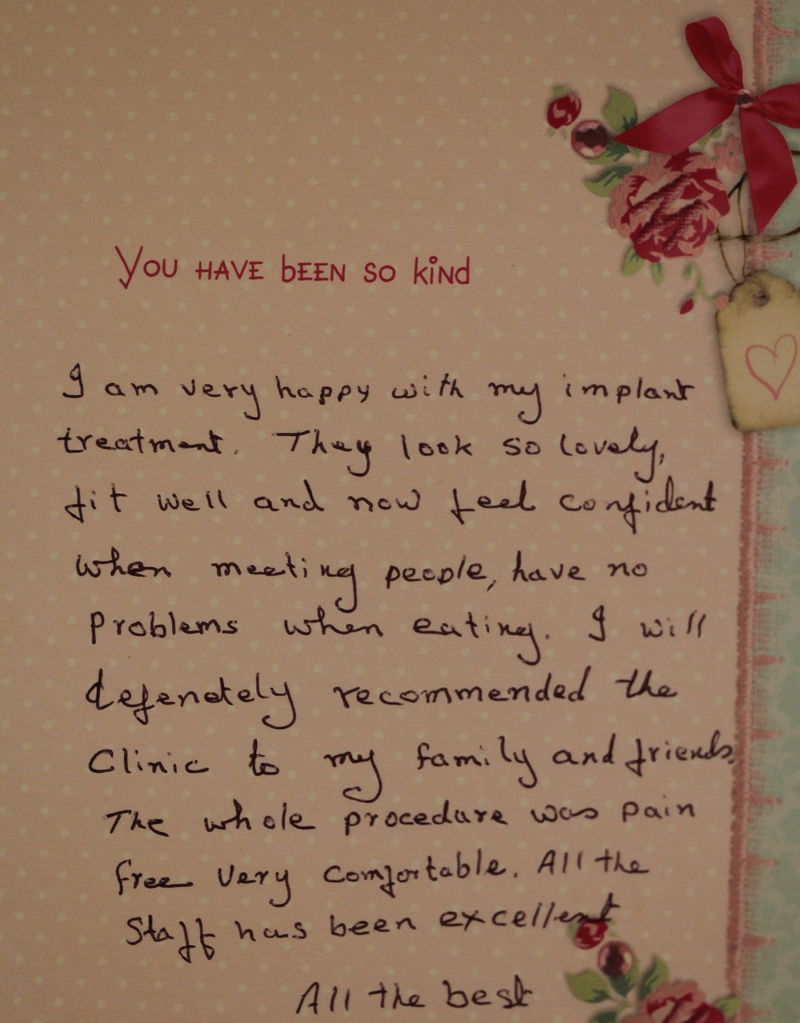 You have been so kind
I am very happy with my implant
treatment. They look so lovely,
fit well and now feel confident
when meeting people, have no
problems when eating. I will
defenetely recommended the
Clinic to my family and friends.
The whole procedure was pain
free very comfortable. All the
Staff has been excellent
All the best